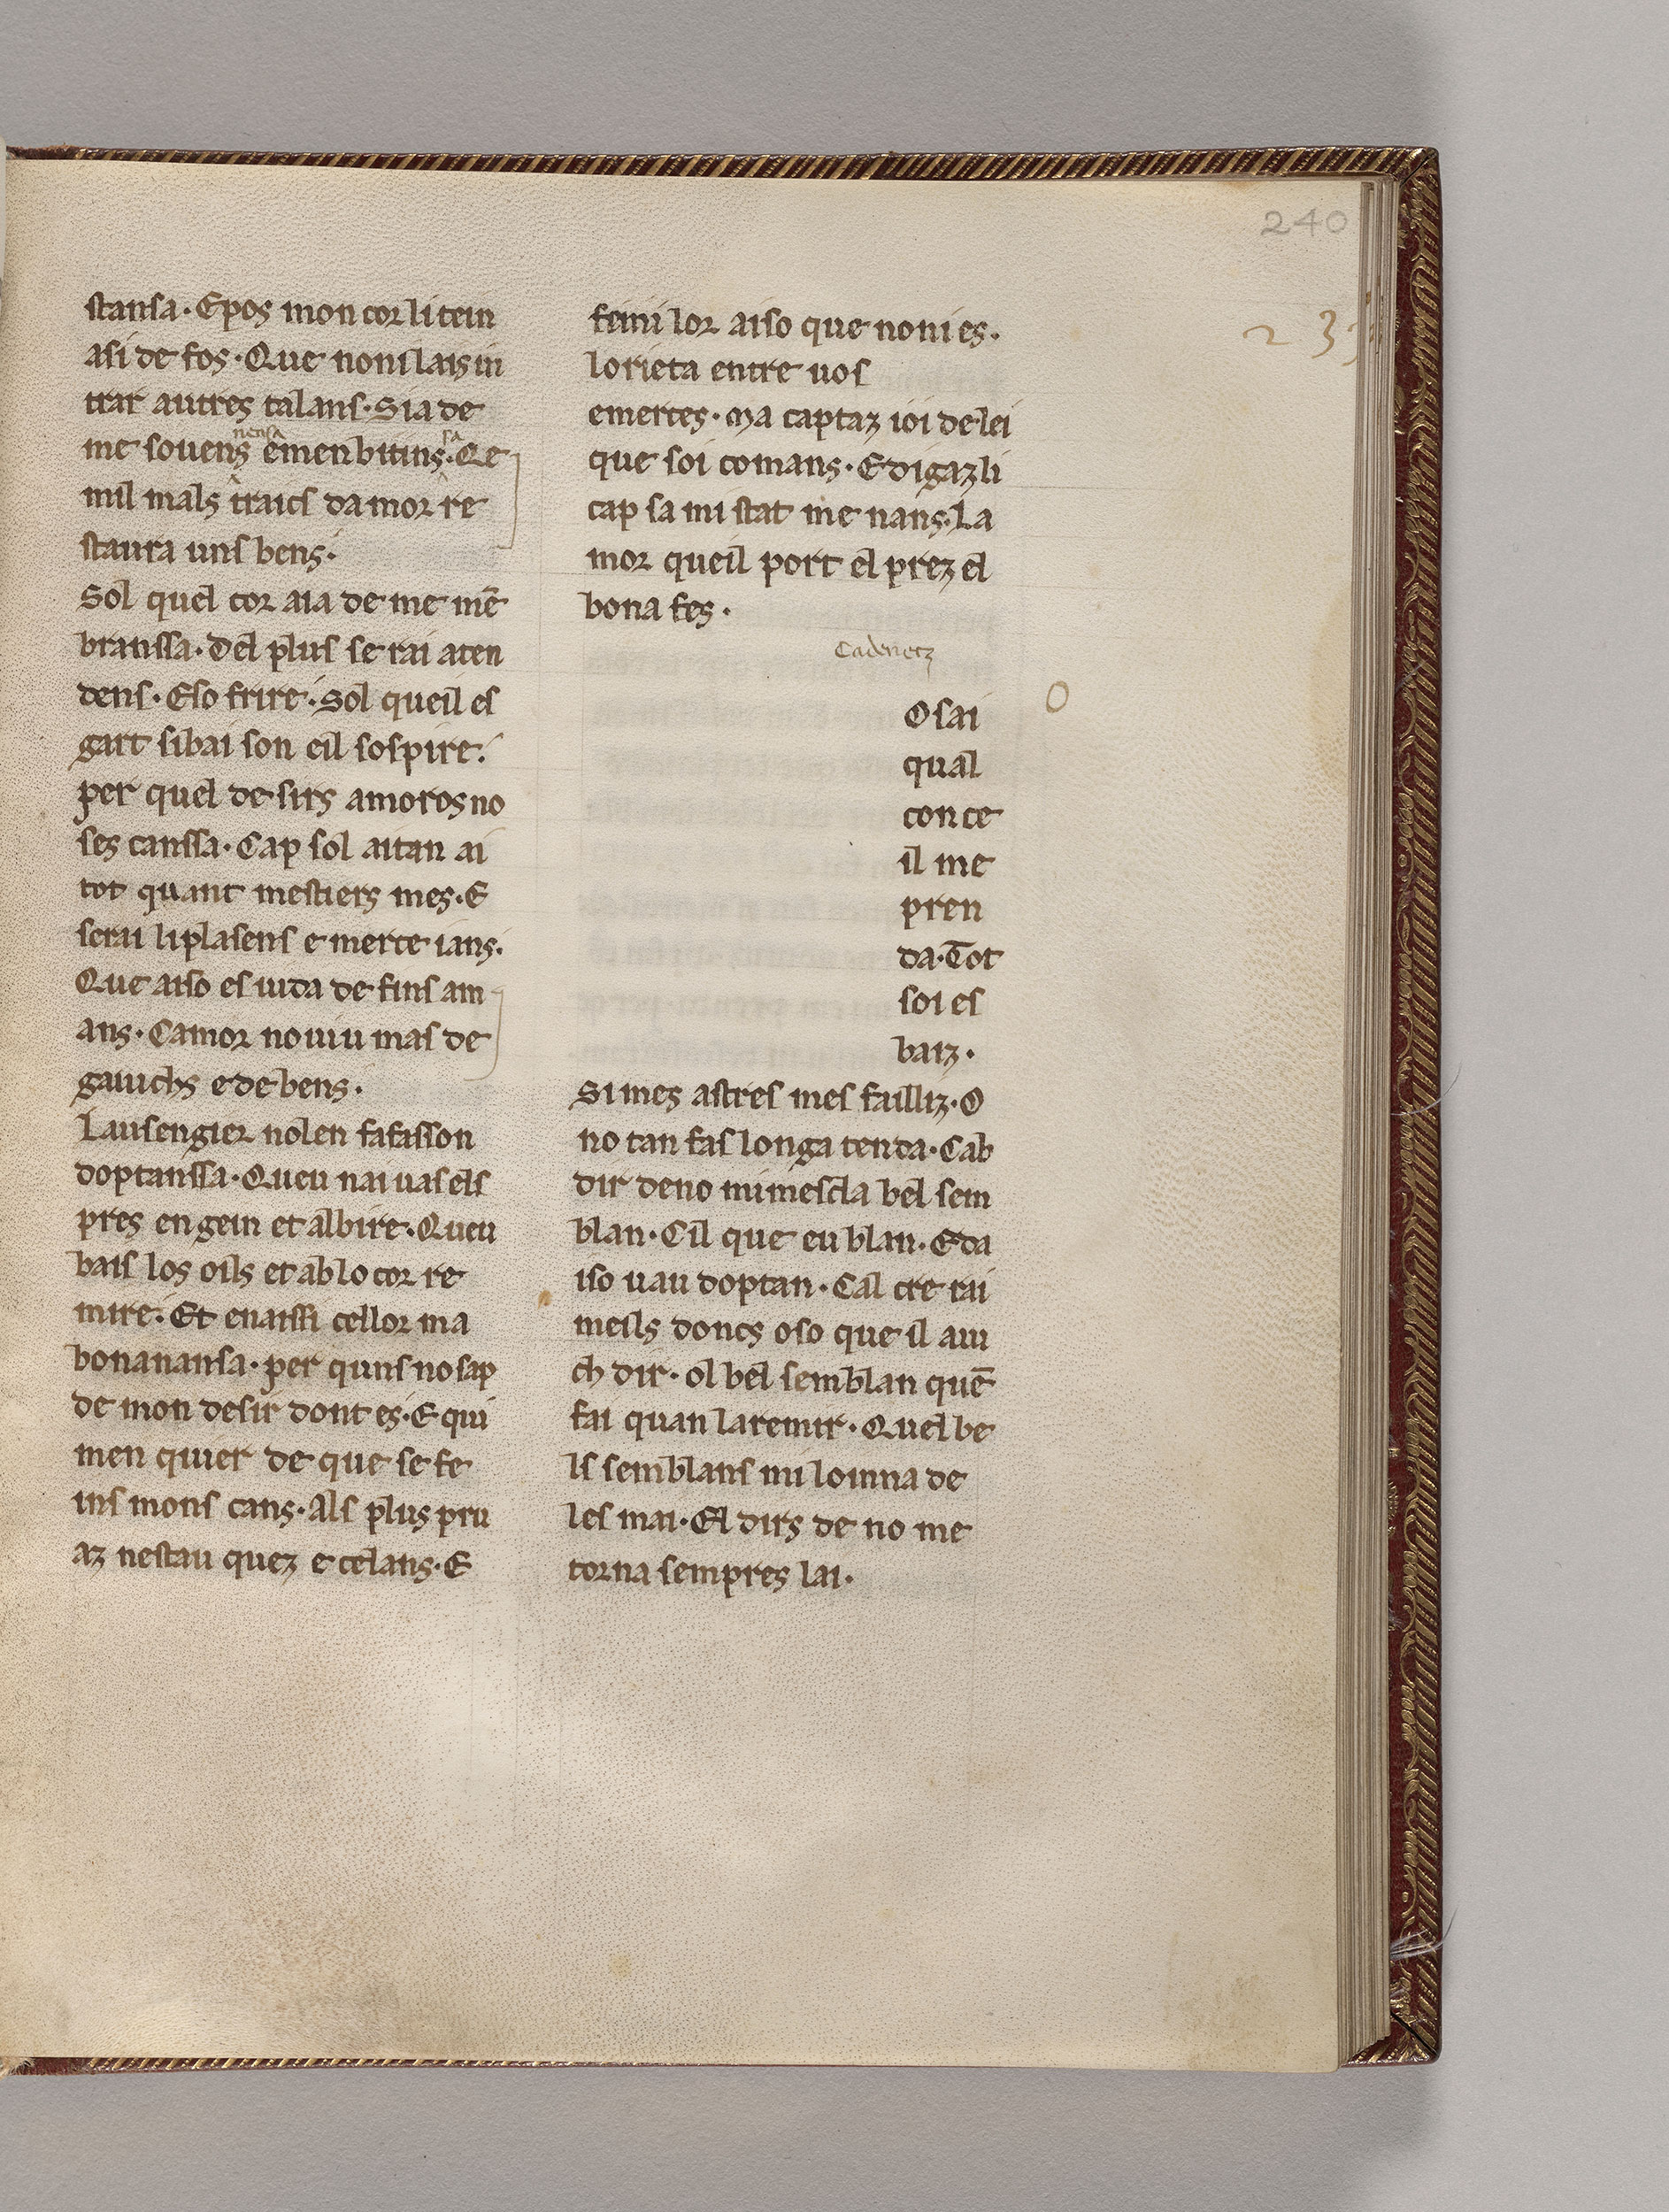 240
233
stansa · Epos mon cor li tein
asi de fos · Que noni lais in
trar autres talans · Sia de
nensa sa
me souens emenbitins · Qe
mil mals traics damor re
staura uns bens ·
Sol quel cor aia de me mē
branssa · Del plus serai aten
dens · Eso frire · Sol queil es
gart sibai son eil sospire ·
per quel desirs amoros no
ses canssa · Cap sol aitan ai
tot quant mestiers mes · E
serai li plasens e merce ians ·
Que aiso es uida de fins am
ans · Camor no uiu mas de
gauchs e de bens ·
Lausengier nolen fafasson
doptanssa · Queu nai uas els
pres engein et albire · Queu
bais los oils et ab lo cor re
mire · Et enaissi cellor ma
bonanansa · per quns no sap
de mon desir dont es · E qui
men quier de que se fe
ins mons cans · Als plus pru
az nestau quez e celans · E
feini lor aiso que noni es ·
lorieta entre uos
emerces · Ma captaz ioi de lei
que soi comans · E digaz li
cap sa mi stat me nans · La
mor queil port el prez el
bona fes ·
Cadenetz
O
Osai
qual
conce
il me
pren
da · Tot
soi es
baiz ·
Si mes astres mes failliz · O
no tan fas longa tenda · Cab
dir deno mi mescla bel sem
blan · Cil que eu blan · E da
iso uau doptan · Cal cre rai
meils doncs oso que il aiu
ch dir · ol bel semblan quē
fai quan la remir · Quel be
ls semblans mi loinna de
les mai · El dirs de no me
torna sempres lai ·